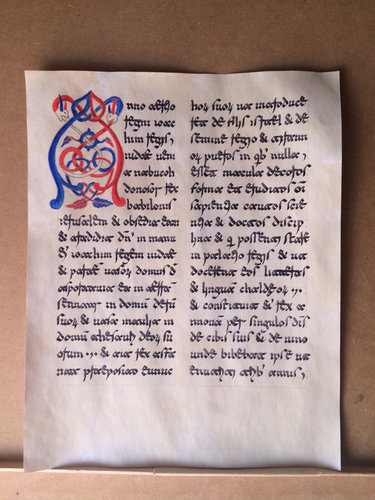 Anno tertio
regni ioac
him regis,
iudae uen
nabucoh
donosor rex
babilonis
& obsedit eam
& tradidit dns in manu
ei ioachim regem iudae
& parte uasor domus d
asportauit ea in terra
sennaar in domu dei
suor & uasa intulit in
domu thesauri deor su
orum & ait rex
preposito eunuc
hor suor ut introduce
ret de filiis israel & de
semine regio & tirann
or pueros in qb nulla,
esset macula decoros
forma et eruditos oni
sapientia cautos scie
ntia & doctos discip
lina & q possent stare
in palatio regis & ut
doceret eos litteras
& lingua chaldeor
& constituit ei rex a
nnona per singulos dies
de cibis suis & de uino
unde bibebat ipse ut
enutriti trib annis,